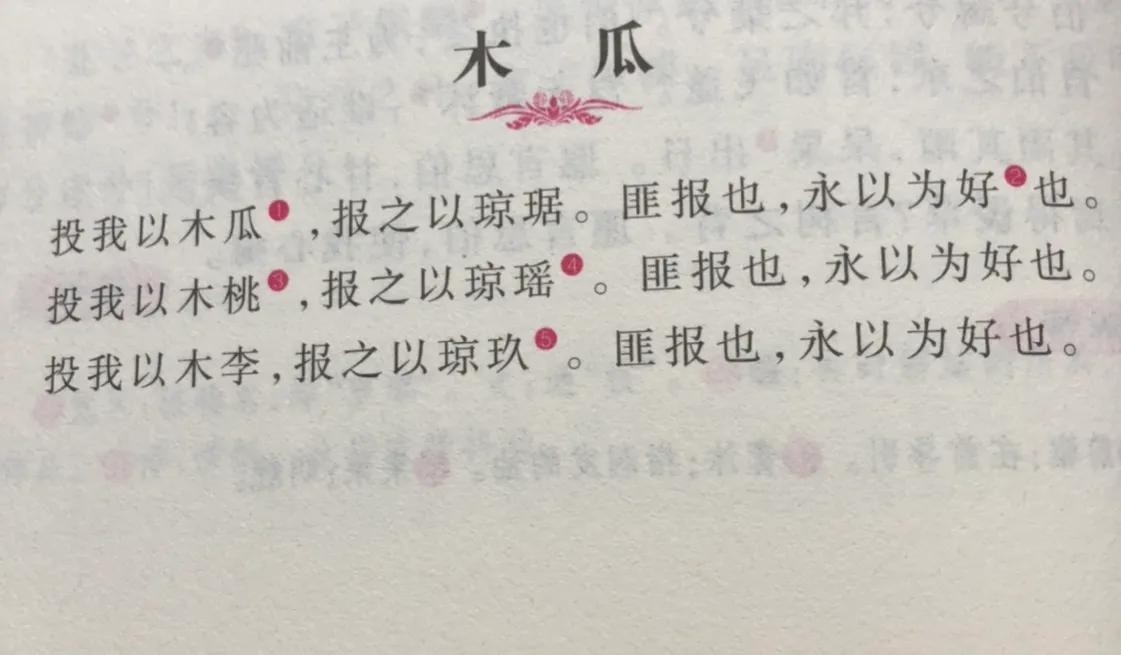 木瓜
投我以木瓜❶,报之以琼琚。匪报也,永以为好❷也。
投我以木桃❸,报之以琼瑶❹。匪报也,永以为好也。
投我以木李,报之以琼玖❺。匪报也,永以为好也。